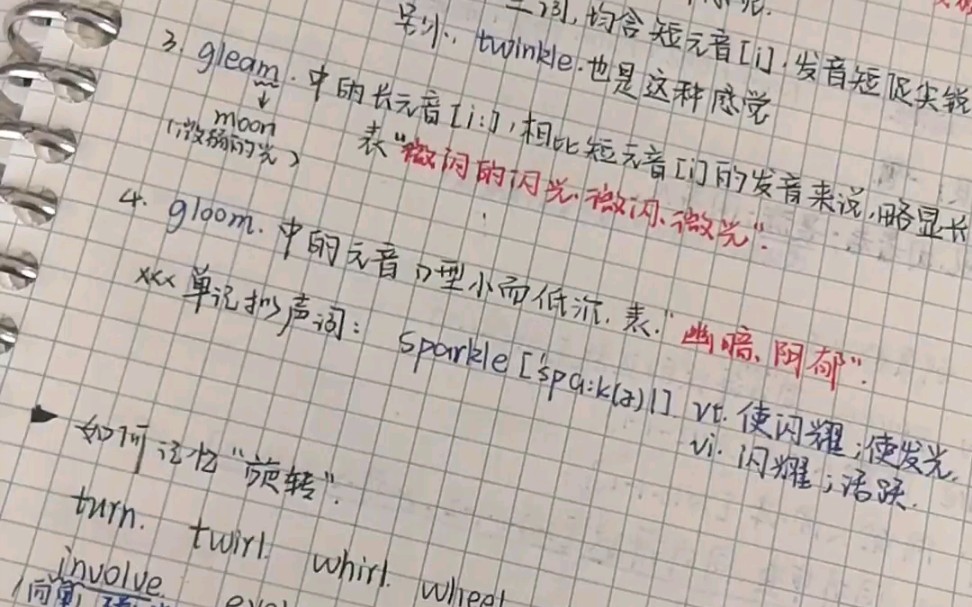 词, 均含短元音[i], 发音短促尖锐
另外, twinkle. 也是这种感觉
3. gleam. 中的长元音[i:], 相比短元音[i]的发音来说, 略显长
moon
(微弱的光)
表"微闪的闪光, 微闪, 微光".
4. gloom. 中的元音口型小而低沉. 表"幽暗、阴郁".
××× 单记拟声词: sparkle ['spɑ:k(ə)l] vt. 使闪耀; 使发光.
vi. 闪耀; 活跃.
▶ 如何记忆"旋转".
turn. twirl. whirl. wheel
involve